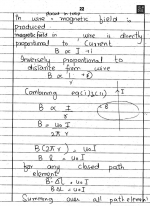 22
(placed in loop)
In wire magnetic field is
produced
magnetic field in wire is directly
proportional to current
B ∝ I → 1
Inversely proportional to
distance from wire
B ∝ 1/r → 2
Combining eq (1) & (2)
B ∝ I/r
B = μ₀ I / 2πr
B (2πr) = μ₀ I
B l = μ₀ I
for any closed path
element
B·ΔL = μ₀ I
BΔL = μ₀ I
Summing over all path element